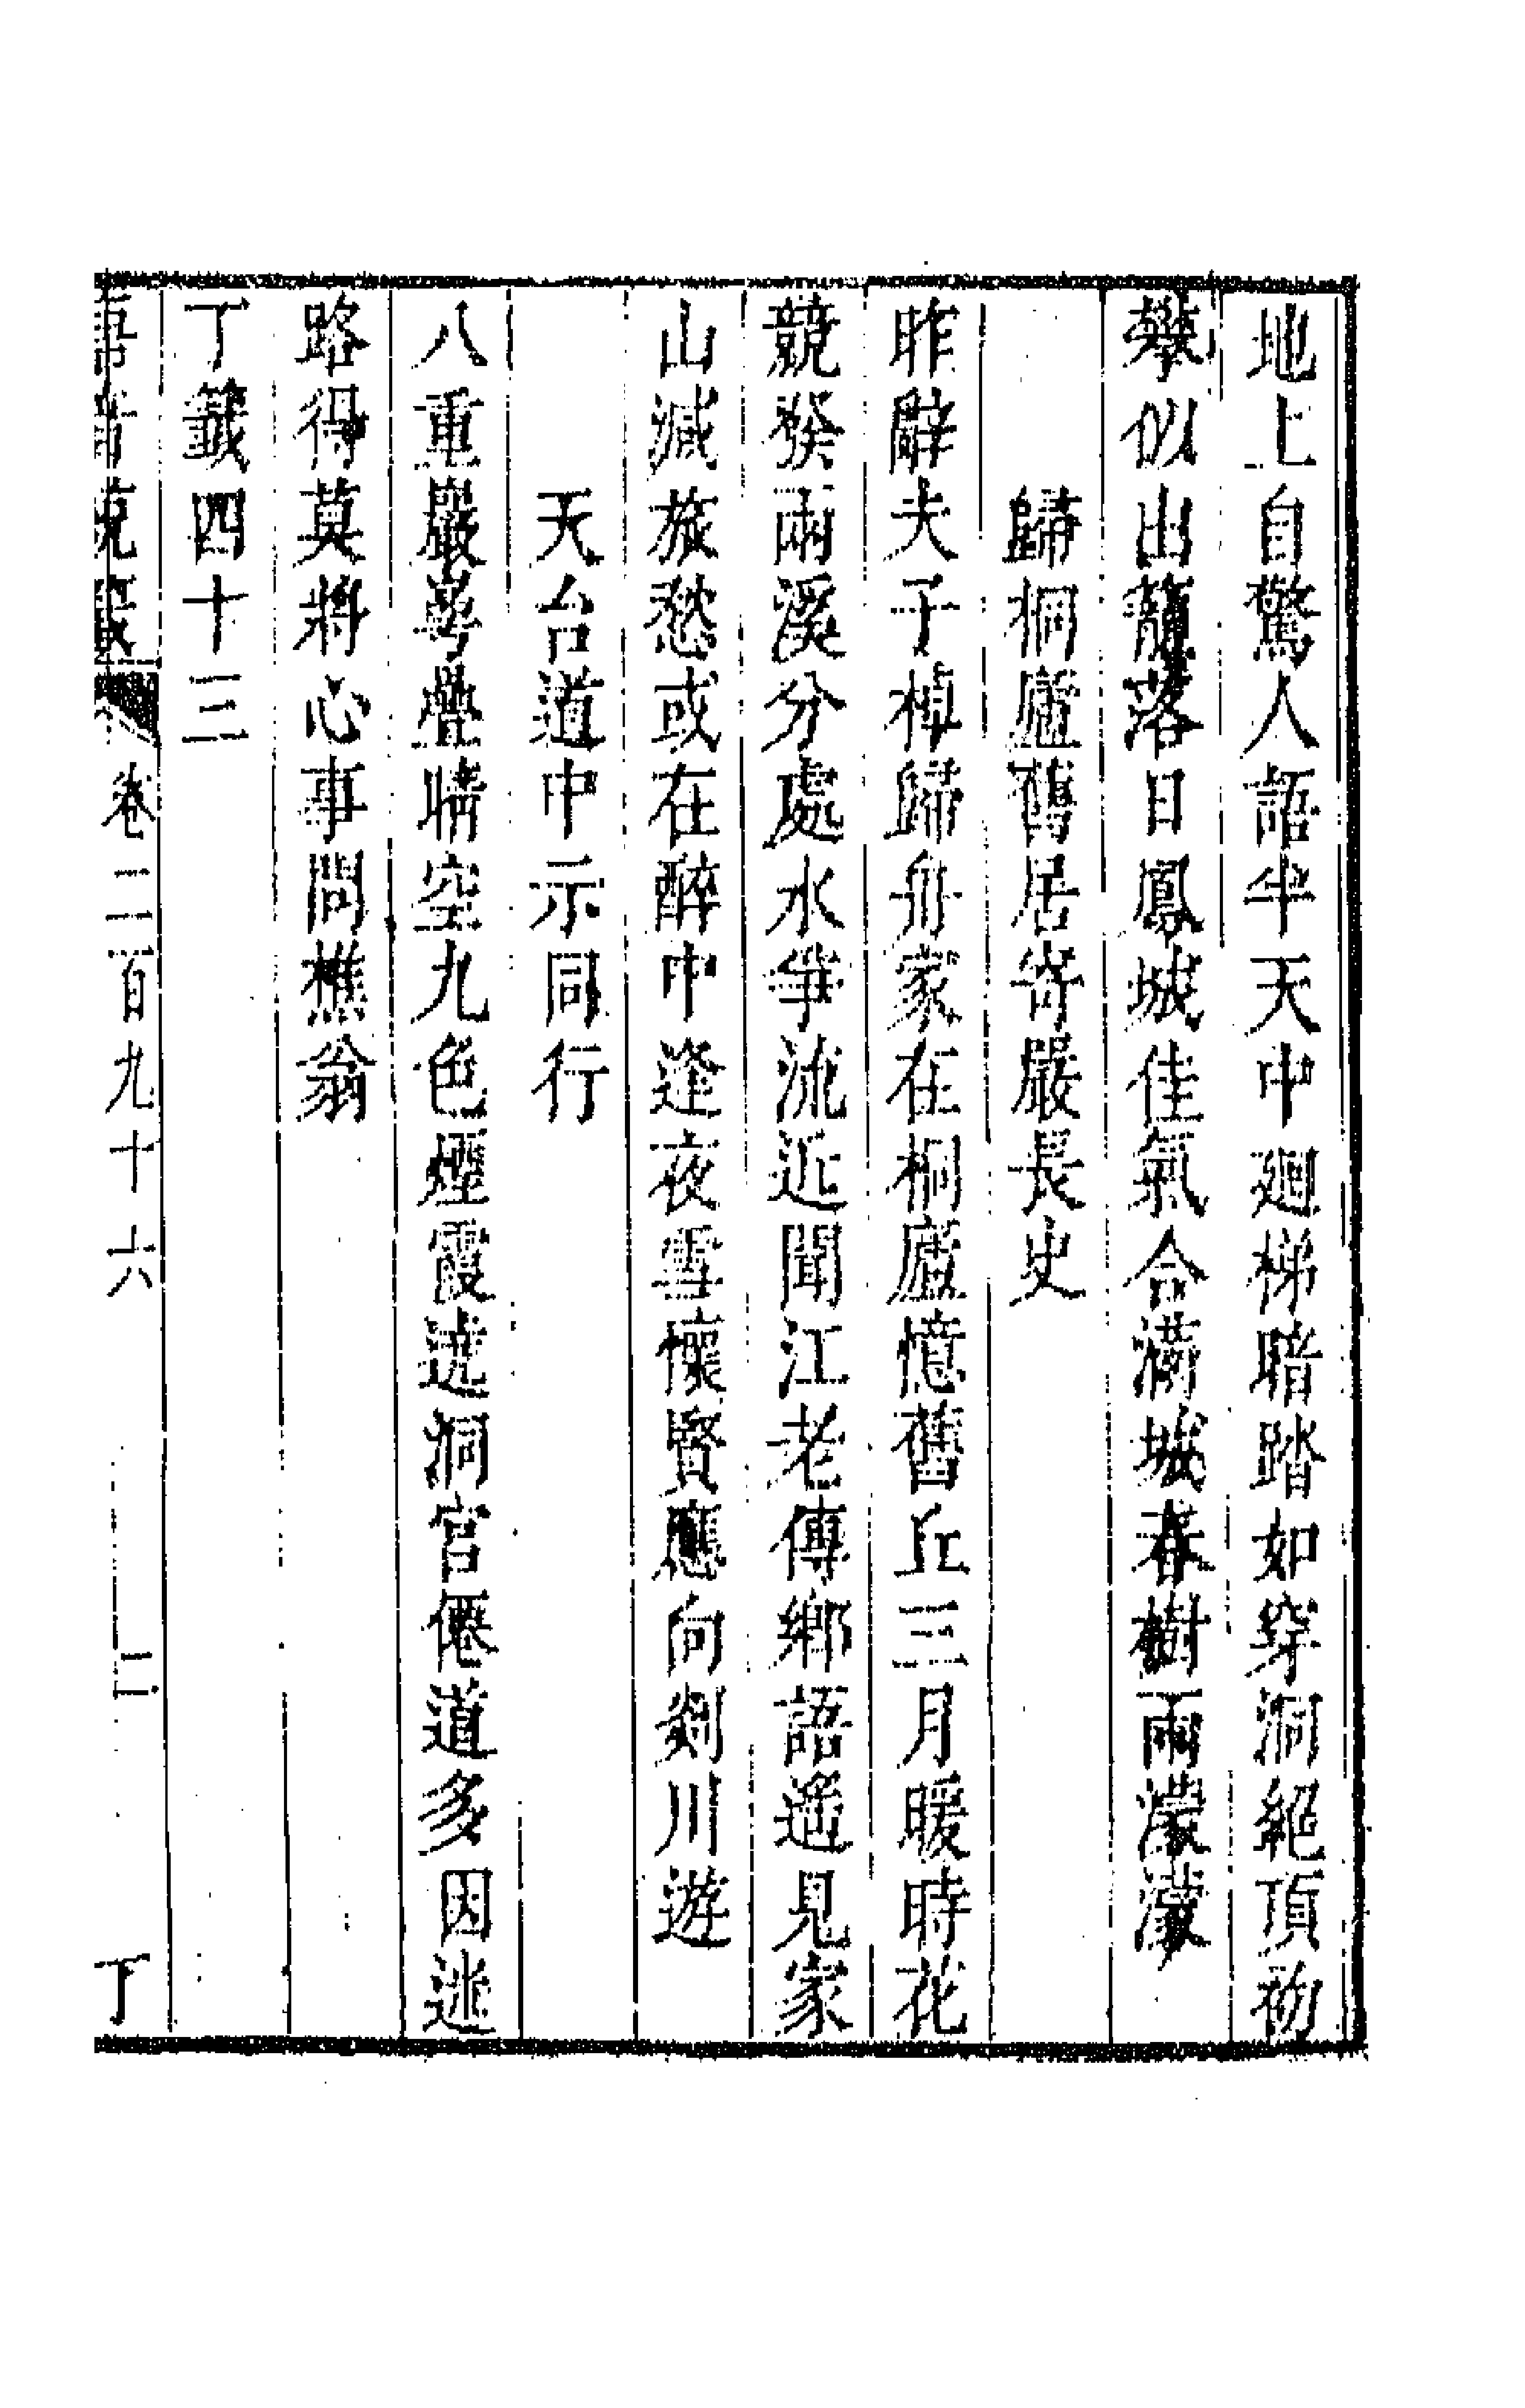 地上自驚人語半天中廻梯暗踏如穿洞絕頂初
攀似出籠落日鳳城佳氣合滿城春樹雨濛濛
歸桐廬舊居寄嚴長史
昨辭夫子棹歸舟家在桐廬憶舊丘三月暖時花
競發兩溪分處水爭流近聞江老傳鄉語遥見家
山減旅愁或在醉中逢夜雪懷賢應向剡川遊
天台道中示同行
八重巖崿疊晴空九色煙霞遶洞宫僊道多因迷
路得莫將心事問樵翁
丁籤四十三
卷二百九十六 二 丁